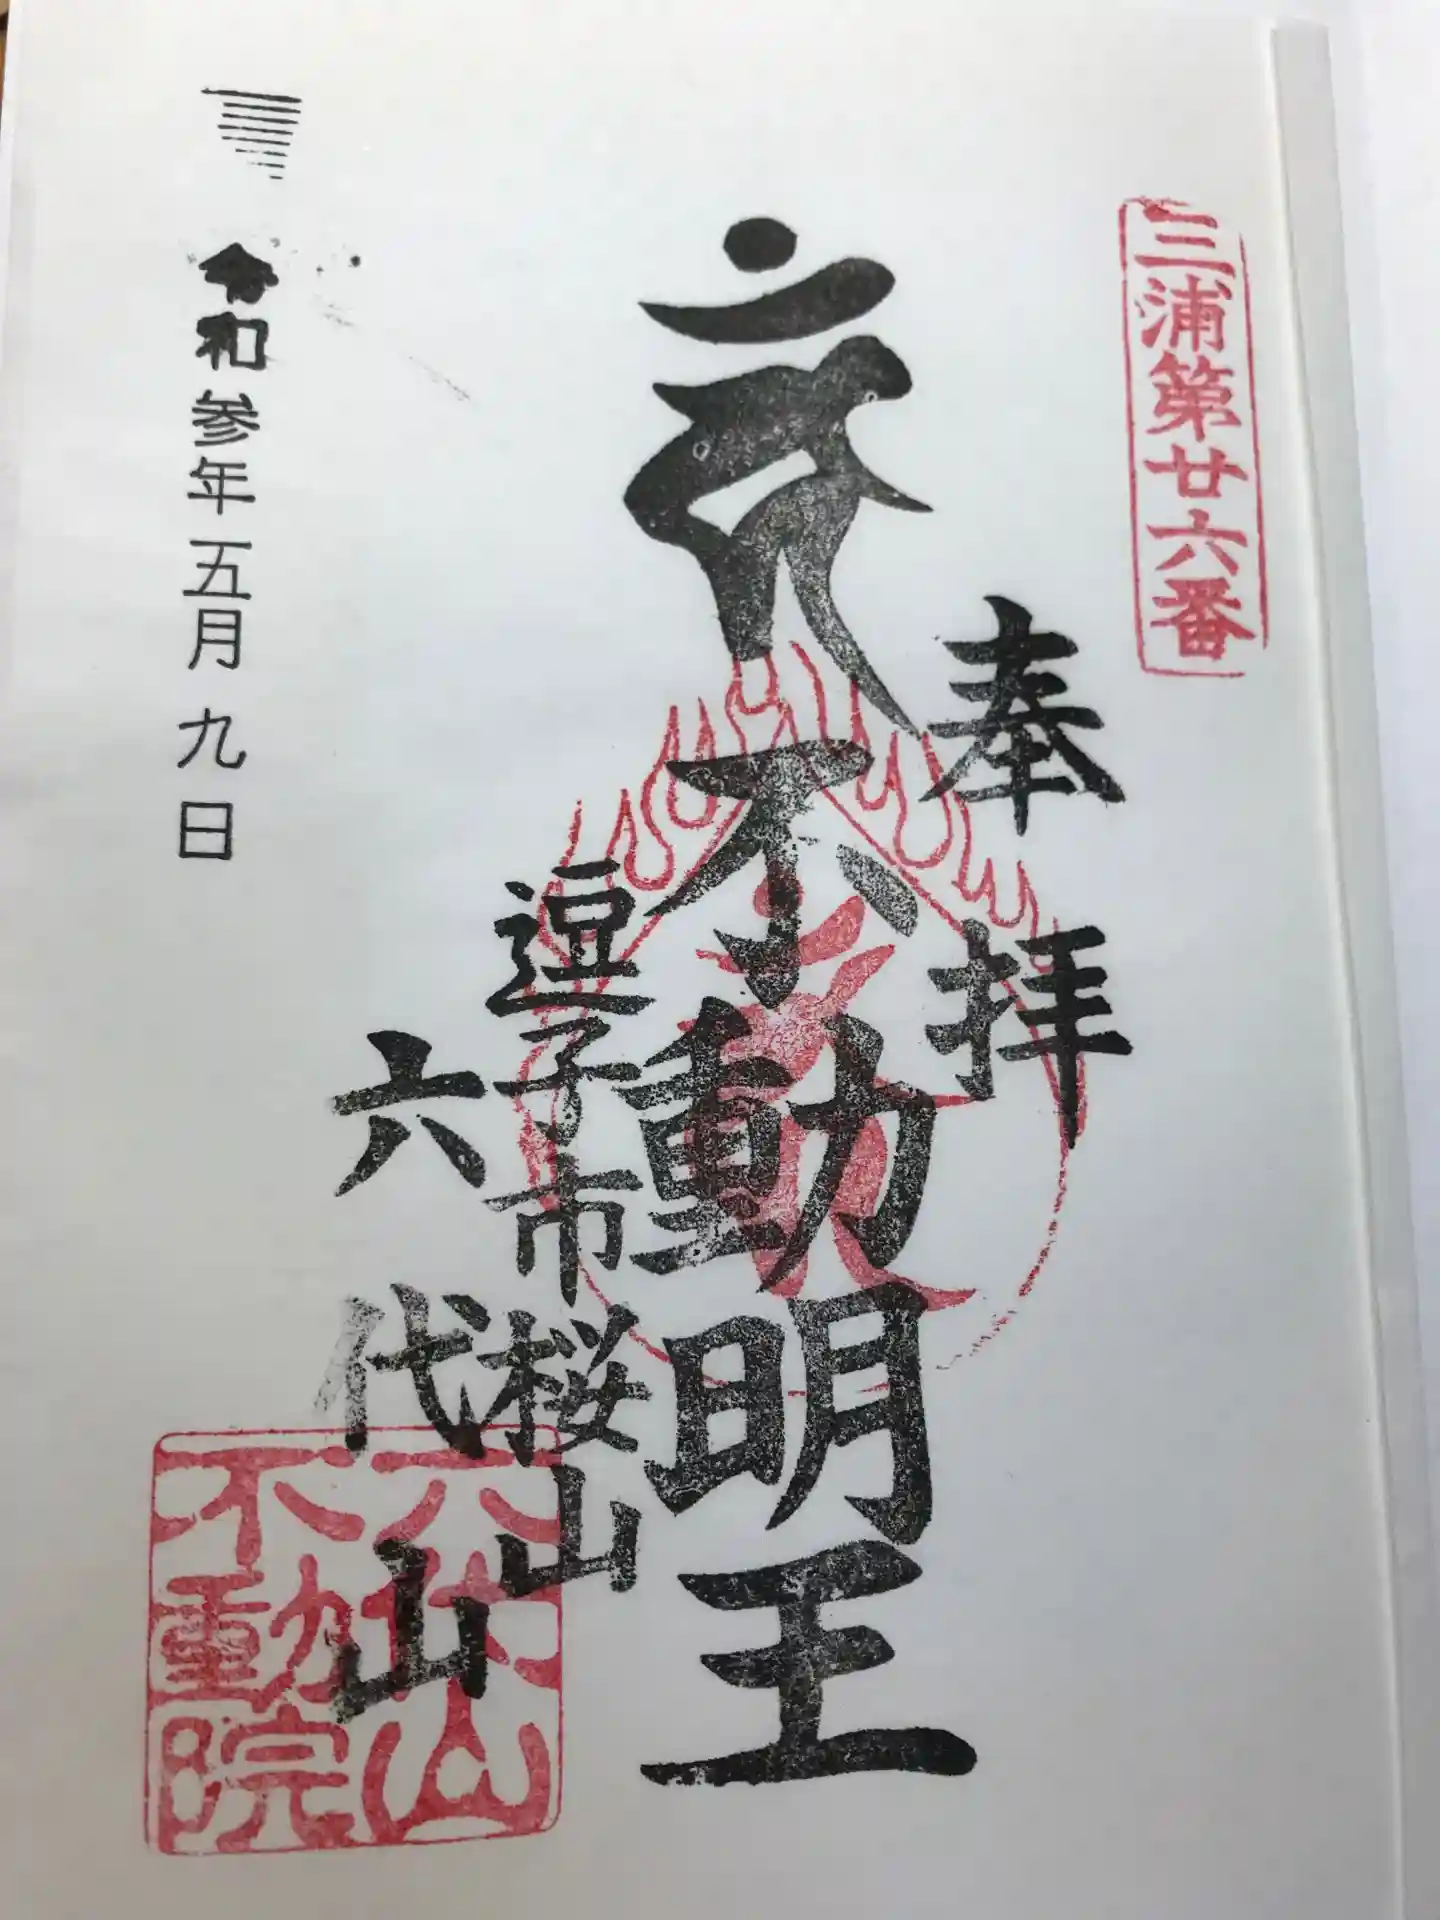 三浦第廿六番
奉拝
不動明王
逗子市桜山
六代山
六代山
不動院
令和参年五月九日